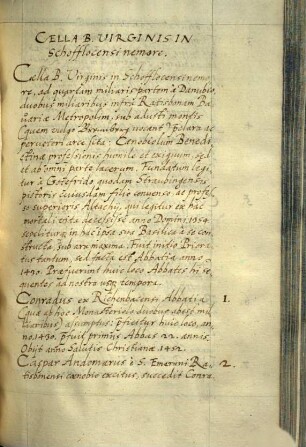 CELLA B. VIRGINIS IN
Schofflocensi nemore.
Cella B. Virginis in Schofflocensi nemo-
re, ad quartam miliaris partem à Danubio,
duobus miliaribus infra Ratisbonam Ba-
variæ Metropolim, sub adusti montis
(quem vulgo nocant) præclara ac
pervetusti arce sita: Cœnobiolum Benedi-
ctinæ professionis humile et exiguum, sed
et ab omni parte lacerum. Fundatum legi-
tur à Gotefrido, quodam Straubingensis
pistoris cuiusdam filio converso, ac profes-
so superioris Altachij, qui legitur ex hac
mortali vita decessisse anno Domini, 1354.
sepultus in hac ipsa sua Basilica à se con-
structa, sub ara maxima. Fuit initio Priora-
tus tantum, sed facta est Abbatia anno
1470. Præfuerunt huic loco Abbates hi se-
quentes ad nostra usq tempora.
Conradus ex Richenbacensi Abbatia 1.
quæ ab hoc Monasterio duobus abest mi-
liaribus assumptus: præficitur huic loco, an-
no. 1470. præfuit primus Abbas 22. annos.
Obijt anno Salutis Christianæ 1492.
Caspar Andomarus è S. Emerani Ra- 2.
tisbonensi cœnobio excitus, succedit Conra